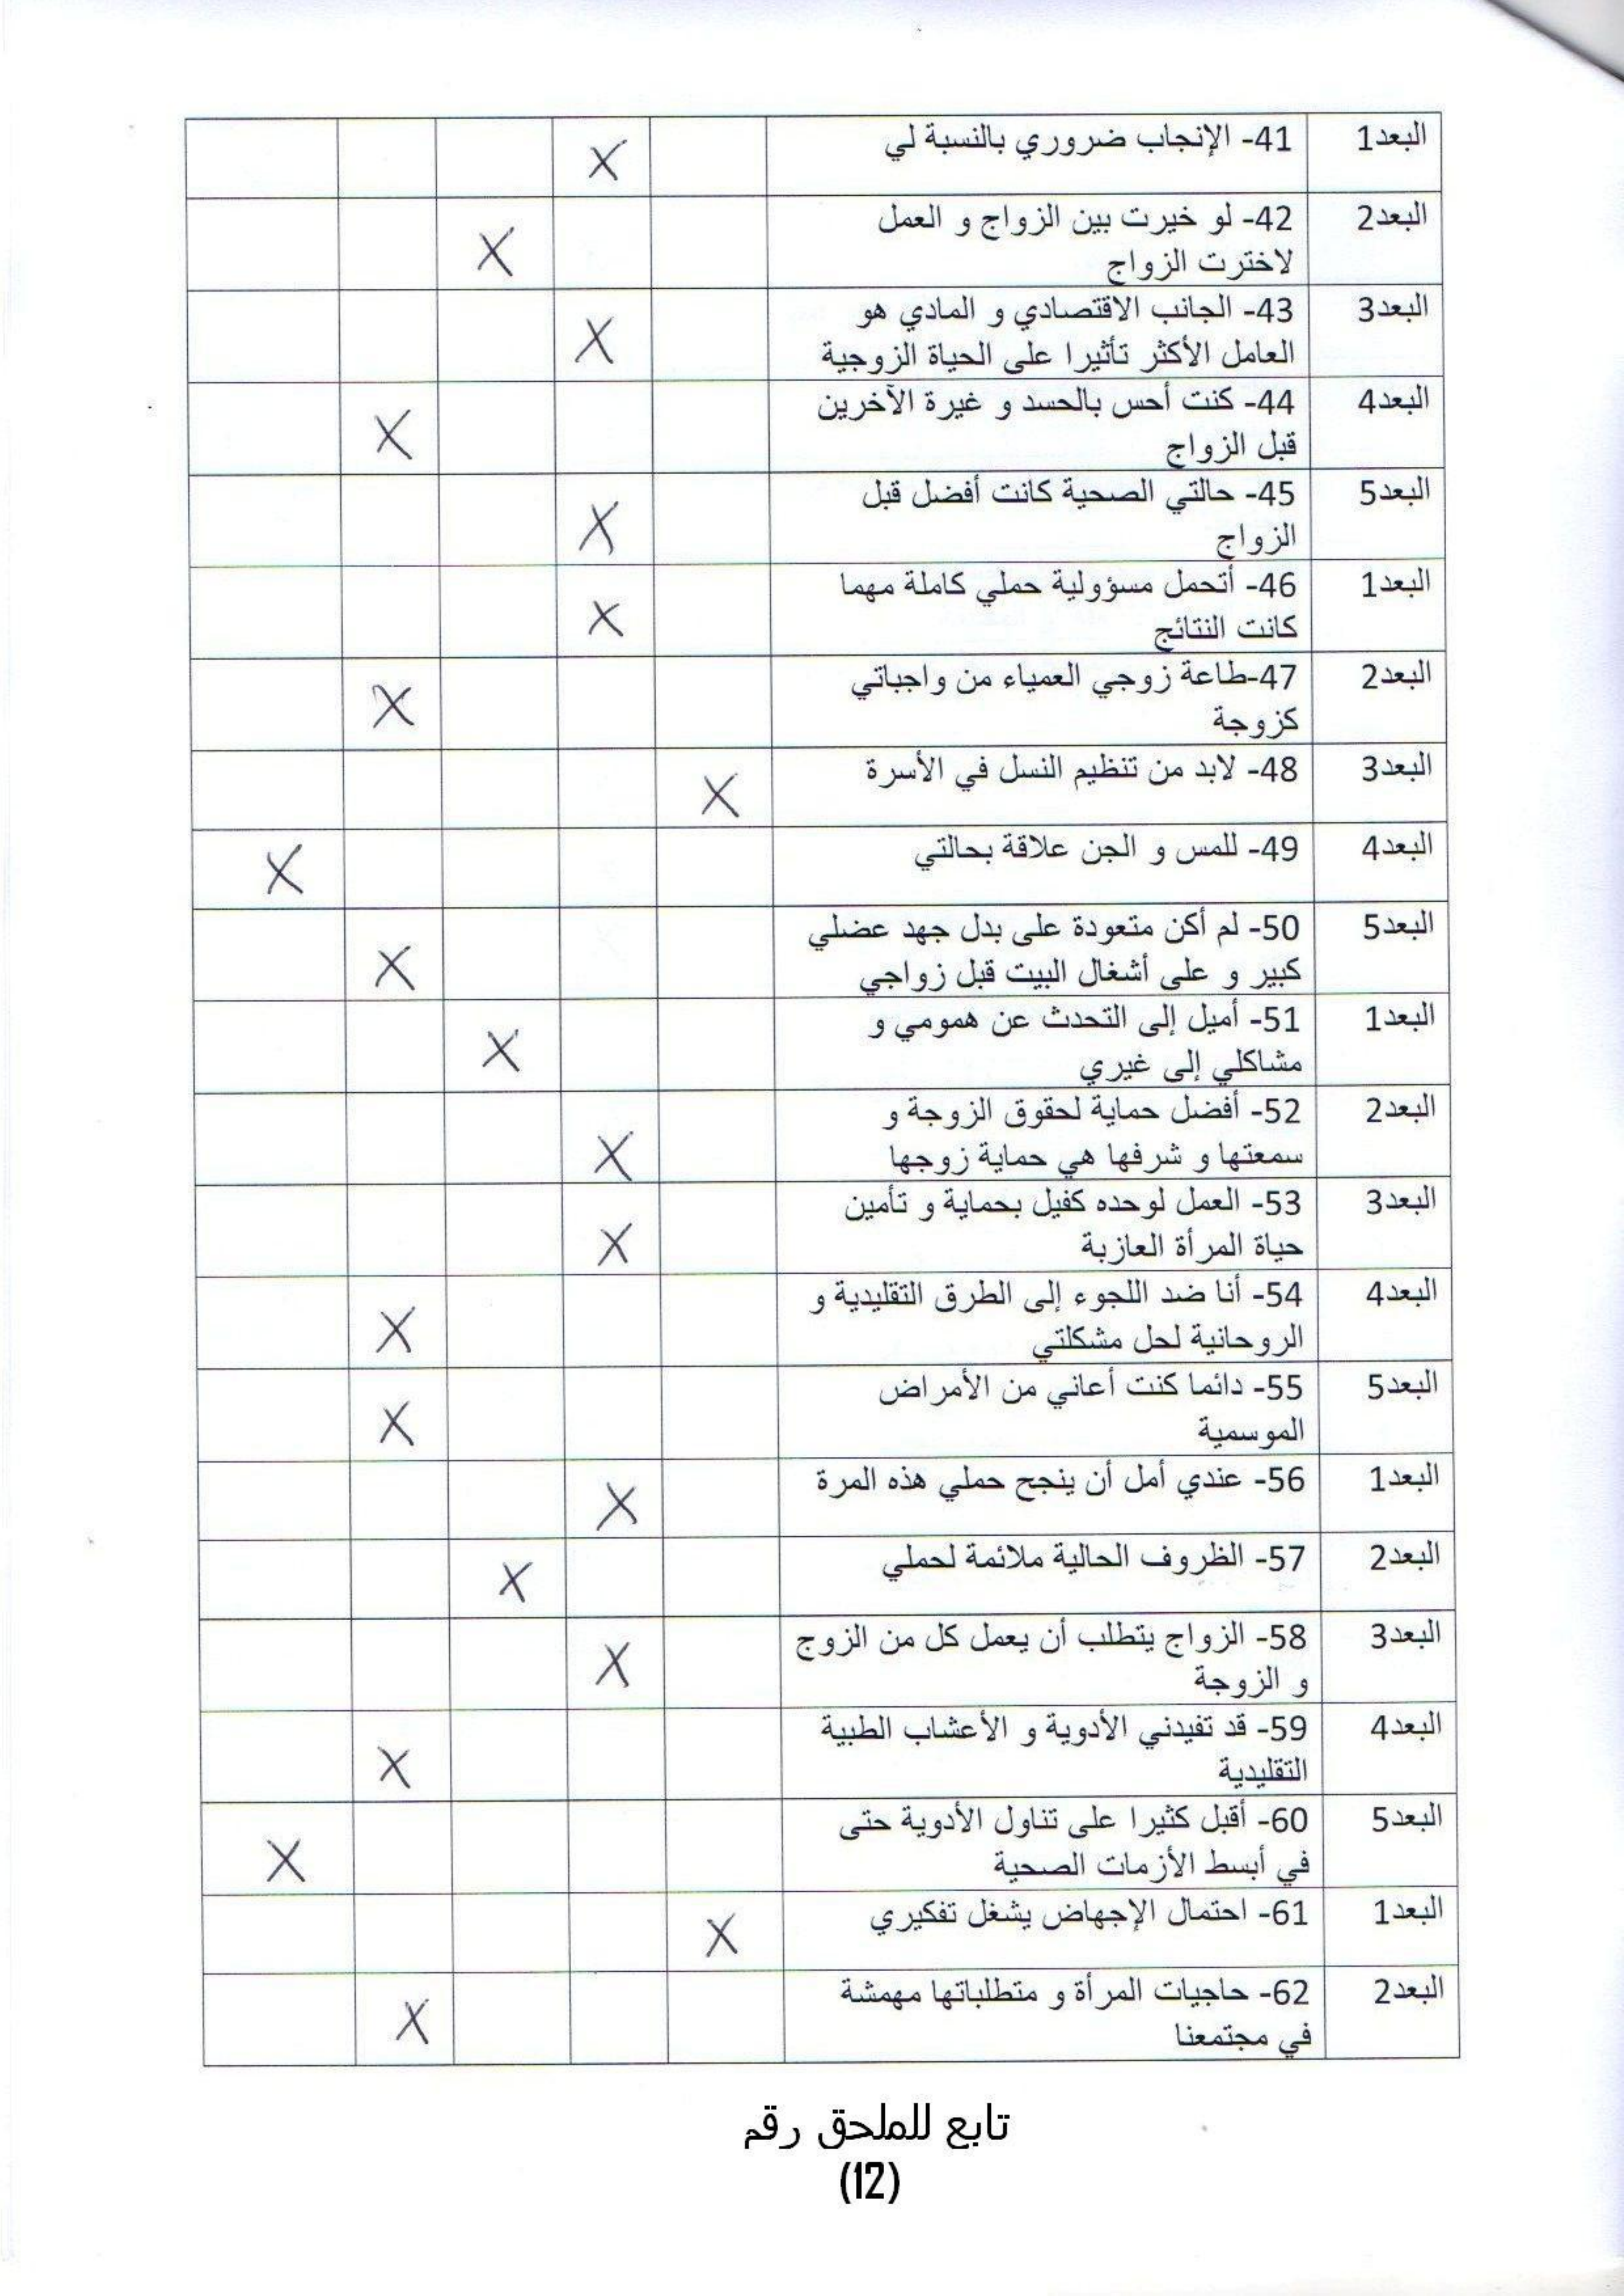 البعد1 41- الإنجاب ضروري بالنسبة لي X
البعد2 42- لو خيرت بين الزواج و العمل
لاخترت الزواج X
البعد3 43- الجانب الاقتصادي و المادي هو
العامل الأكثر تأثيرا على الحياة الزوجية X
البعد4 44- كنت أحس بالحسد و غيرة الآخرين
قبل الزواج X
البعد5 45- حالتي الصحية كانت أفضل قبل
الزواج X
البعد1 46- أتحمل مسؤولية حملي كاملة مهما
كانت النتائج X
البعد2 47-طاعة زوجي العمياء من واجباتي
كزوجة X
البعد3 48- لابد من تنظيم النسل في الأسرة X
البعد4 49- للمس و الجن علاقة بحالتي X
البعد5 50- لم أكن متعودة على بدل جهد عضلي
كبير و على أشغال البيت قبل زواجي X
البعد1 51- أميل إلى التحدث عن همومي و
مشاكلي إلى غيري X
البعد2 52- أفضل حماية لحقوق الزوجة و
سمعتها و شرفها هي حماية زوجها X
البعد3 53- العمل لوحده كفيل بحماية و تأمين
حياة المرأة العازبة X
البعد4 54- أنا ضد اللجوء إلى الطرق التقليدية و
الروحانية لحل مشكلتي X
البعد5 55- دائما كنت أعاني من الأمراض
الموسمية X
البعد1 56- عندي أمل أن ينجح حملي هذه المرة X
البعد2 57- الظروف الحالية ملائمة لحملي X
البعد3 58- الزواج يتطلب أن يعمل كل من الزوج
و الزوجة X
البعد4 59- قد تفيدني الأدوية و الأعشاب الطبية
التقليدية X
البعد5 60- أقبل كثيرا على تناول الأدوية حتى
في أبسط الأزمات الصحية X
البعد1 61- احتمال الإجهاض يشغل تفكيري X
البعد2 62- حاجيات المرأة و متطلباتها مهمشة
في مجتمعنا X
تابع للملحق رقم
(12)